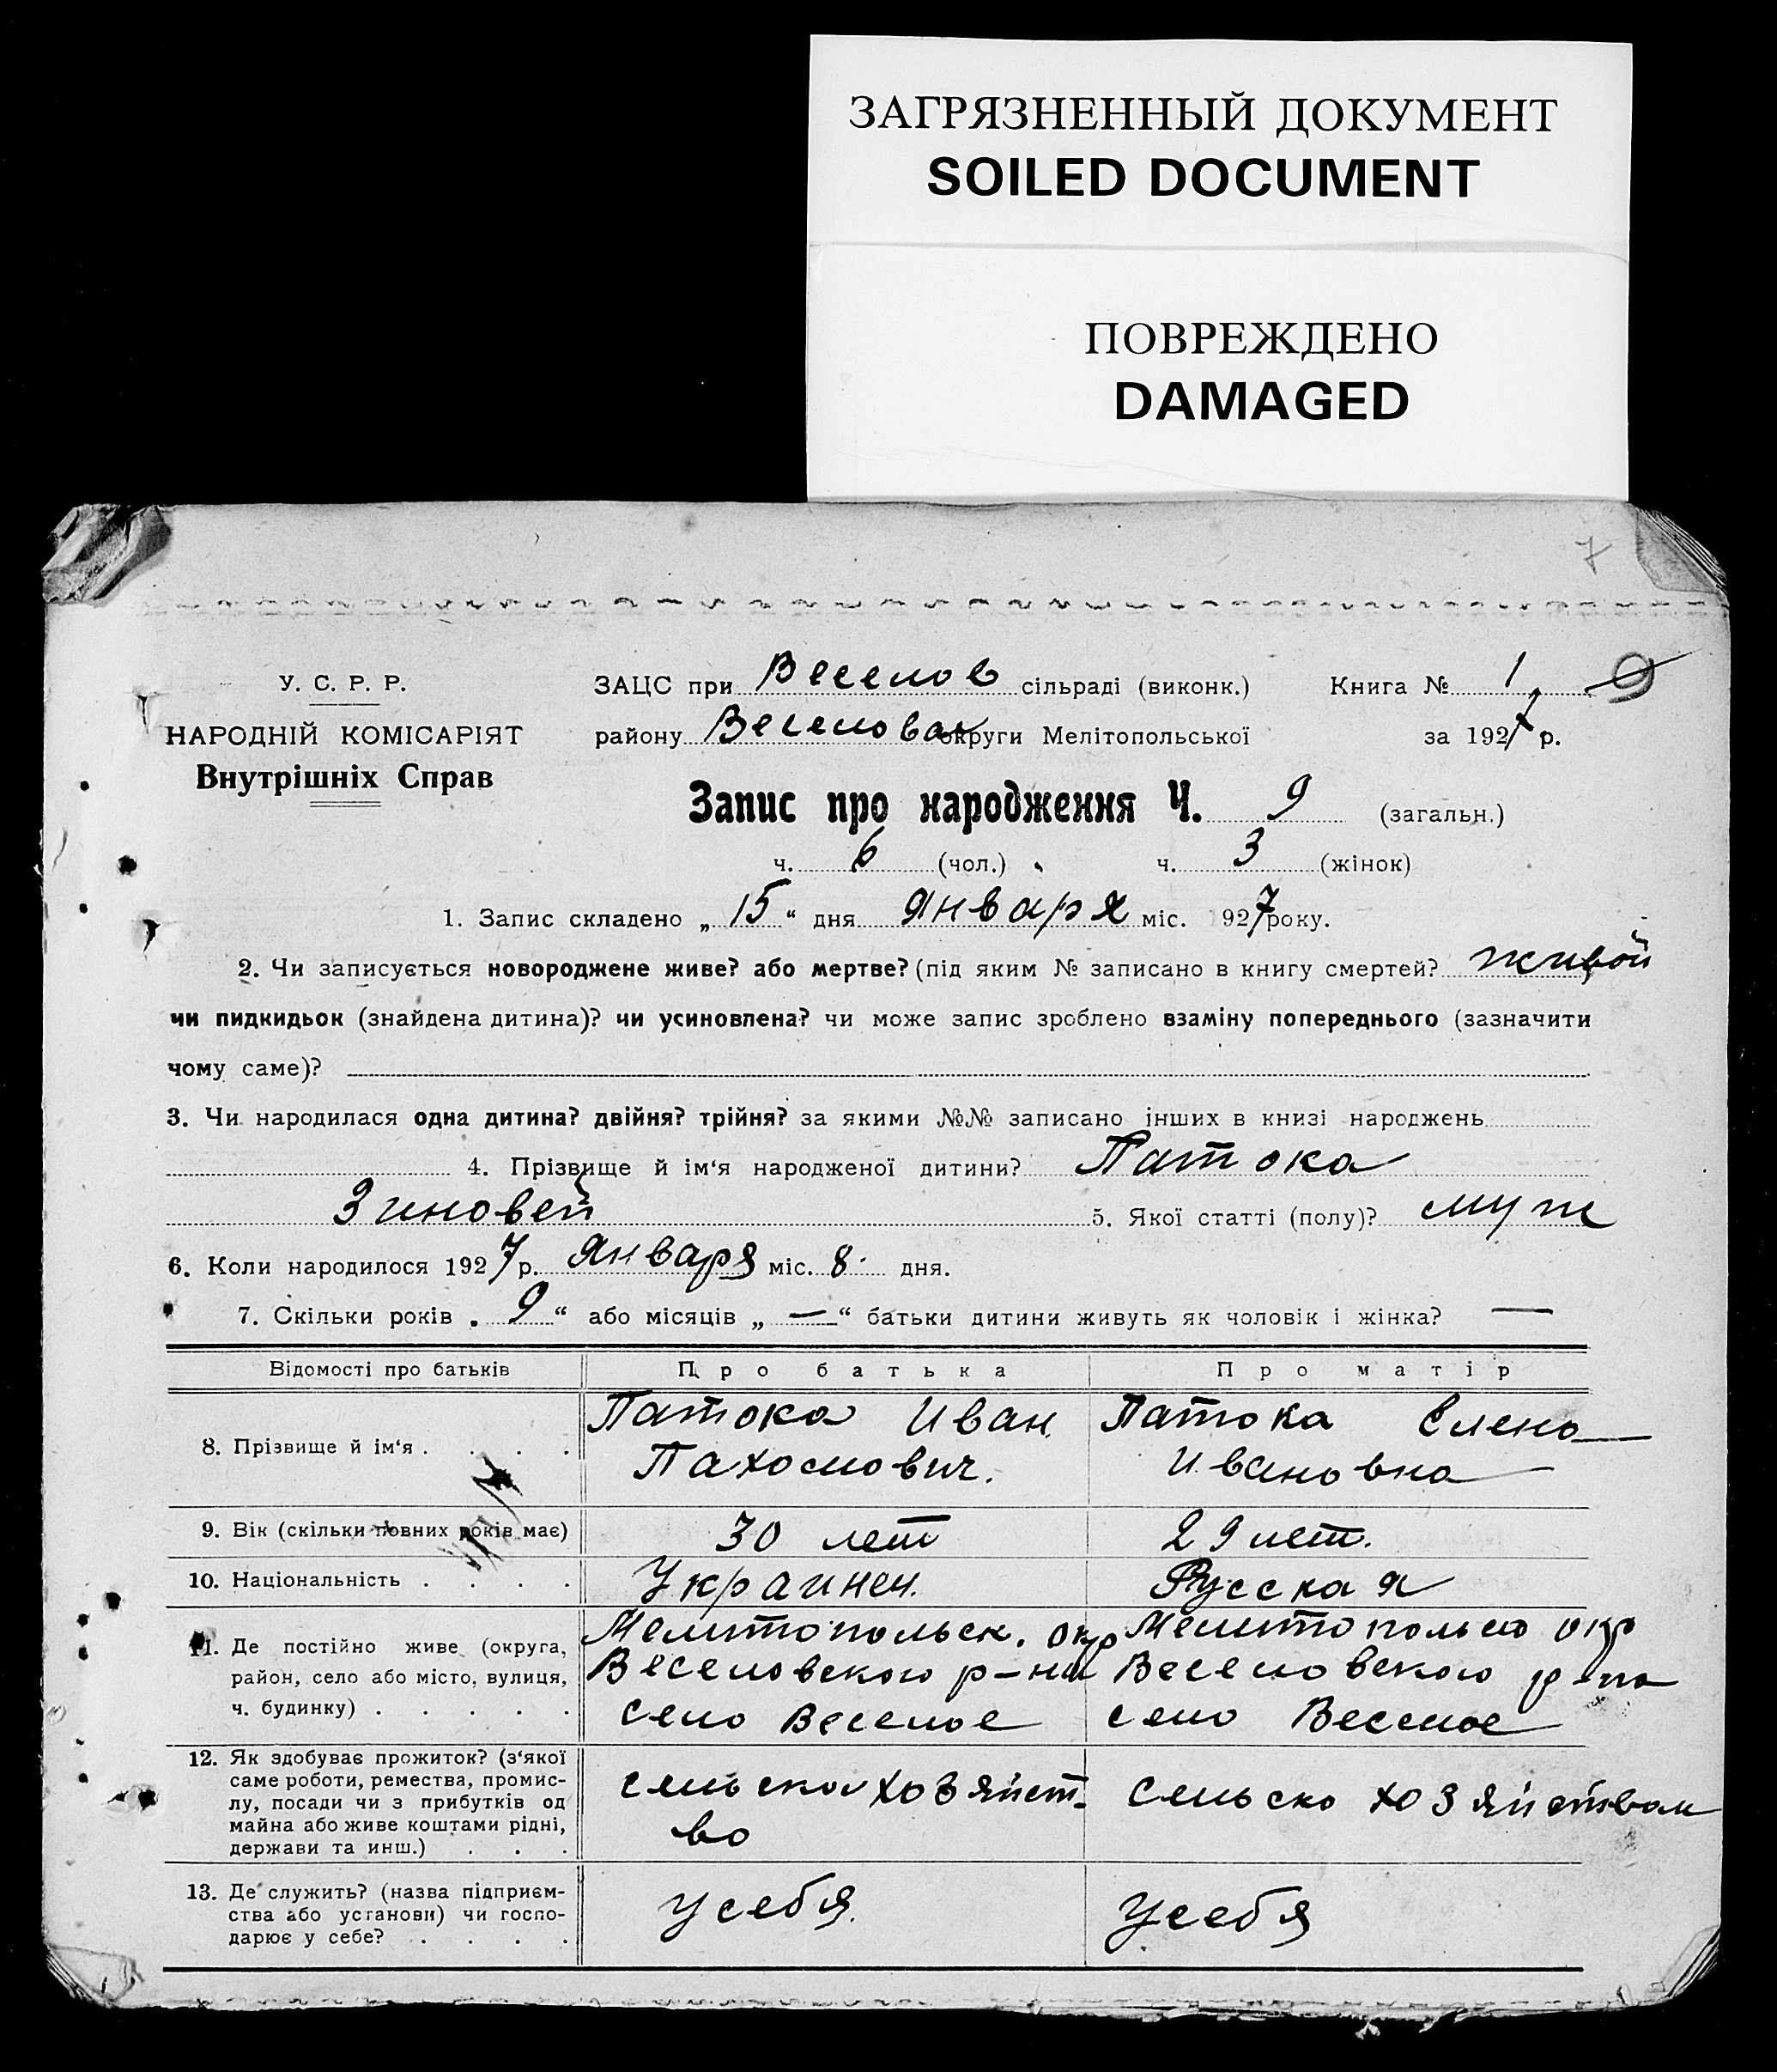 ЗАГРЯЗНЕННЫЙ ДОКУМЕНТ
SOILED DOCUMENT
ПОВРЕЖДЕНО
DAMAGED
7
У. С. Р. Р.
НАРОДНІЙ КОМІСАРІЯТ
Внутрішніх Справ
ЗАЦС при Веселов сільраді (виконк.) Книга № 1 9
району Веселовск округи Мелітопольської за 1927 р.
Запис про народження Ч. 9 (загальн.)
ч. 6 (чол.) ч. 3 (жінок)
1. Запис складено „ 15 “ дня Января міс. 1927 року.
2. Чи записується новороджене живе? або мертве? (під яким № записано в книгу смертей? живой
чи пидкидьок (знайдена дитина)? чи усиновлена? чи може запис зроблено взаміну попереднього (зазначити
чому саме)?
3. Чи народилася одна дитина? двійня? трійня? за якими №№ записано інших в книзі народжень
4. Прізвище й ім‘я народженої дитини? Патока
Зиновей 5. Якої статті (полу)? муж
6. Коли народилося 1927 р. Января міс. 8 дня.
7. Скільки років „ 9 “ або місяців „ — “ батьки дитини живуть як чоловік і жінка? —
Відомості про батьків Про батька Про матір
8. Прізвище й ім‘я . . . . Патока Иван Пахомович. Патока Елена Ивановна
9. Вік (скільки повних років має) 30 лет 29 лет.
10. Національність . . . . Украинец. Русская
11. Де постійно живе (округа,
район, село або місто, вулиця,
ч. будинку) . . . . .
Мелитопольск. окр
Веселовского р-на
село Веселое
Мелитопольско окр
Веселовского р-на
село Веселое
12. Як здобуває прожиток? (з‘якої
саме роботи, ремества, промис-
лу, посади чи з прибутків од
майна або живе коштами рідні,
держави та инш.) . . .
сельско хозяйст-
во
Сельско хозяйством
13. Де служить? (назва підприєм-
ства або установи) чи госпо-
дарює у себе? . . . .
у себя.
у себя